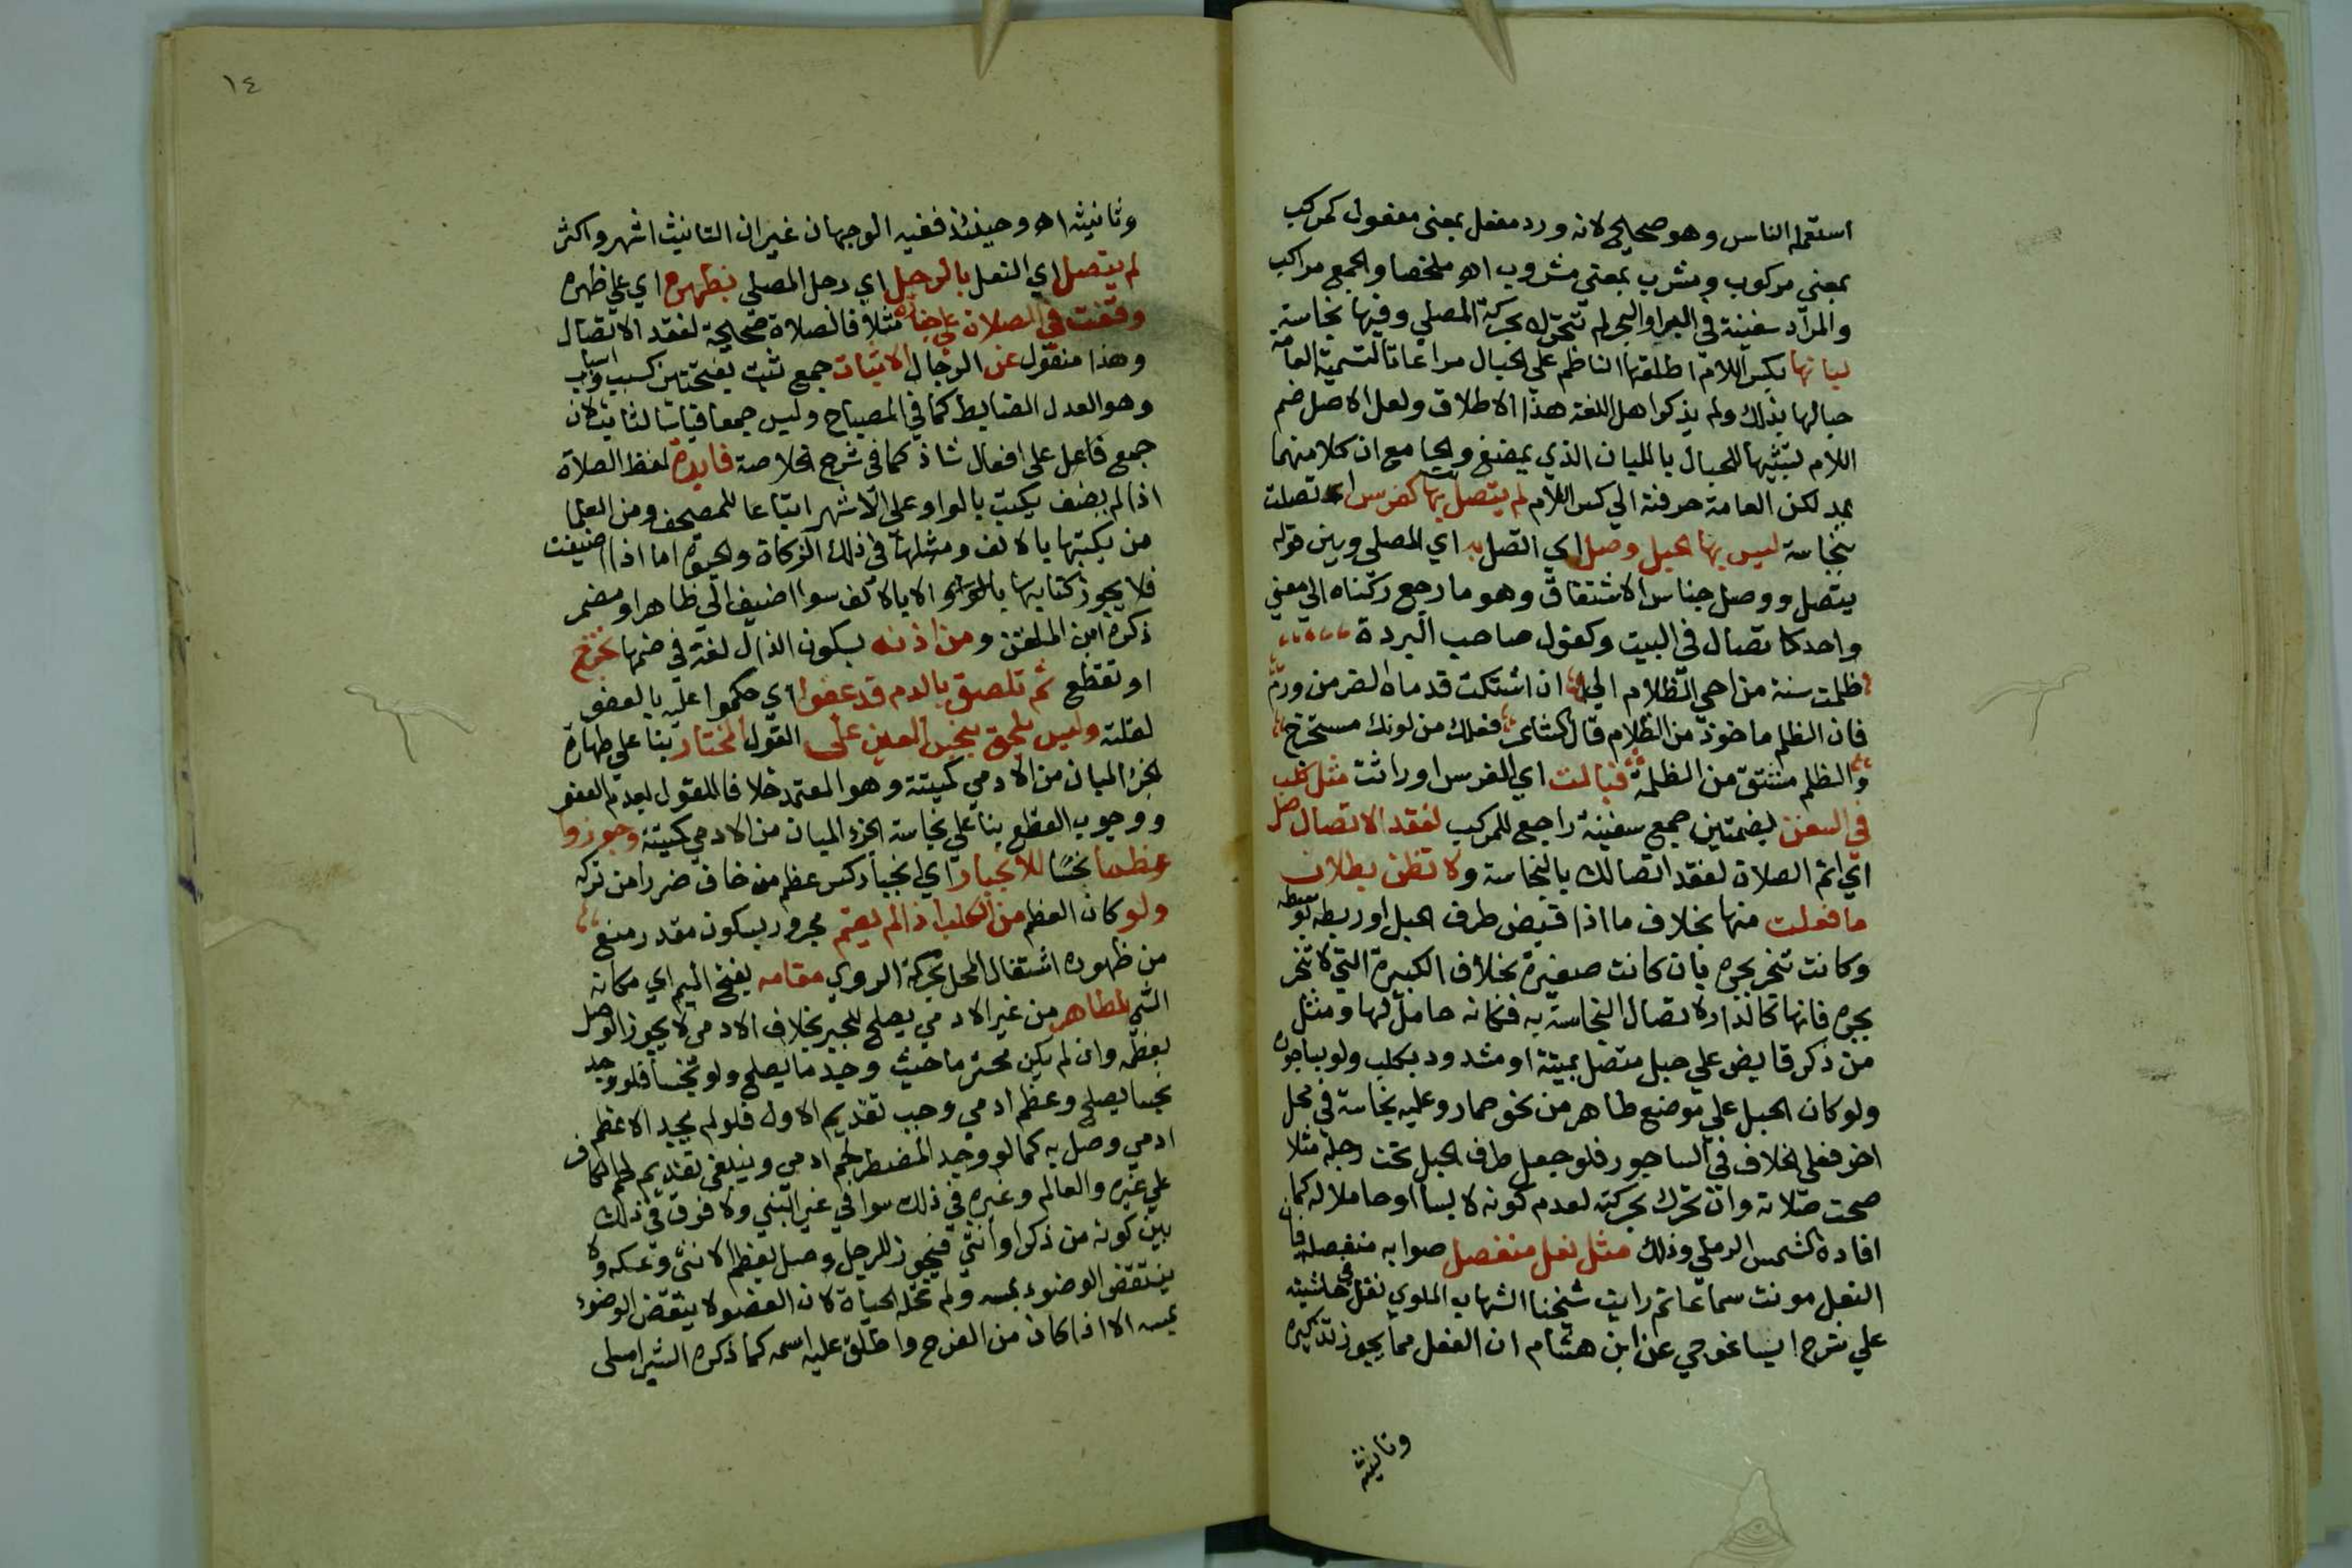 استعمله الناس وهو صحيح لانه ورد مفعل بمعنى مفعول كمركب
بمعنى مركوب ومشرب بمعنى مشروب اه ملخصا والجمع مراكب
والمراد سفينة في البر او البحر لم تتحرك بحركة المصلي وفيها نجاسة
لبانها بكسر اللام اطلقها الناظم على الحبال مراعاة لتسمية العامة
حبالها بذلك ولم يذكر اهل اللغة هذا الاطلاق ولعل الاصل ضم
اللام تشبيها للحبال باللبان الذي يمضغ والجامع ان كلا منهما
يمد لكن العامة حرفته الى كسر اللام لم يتصل بها كفرس اتصلت
بنجاسة ليس بها الحبل وصل اي اتصل به اي المصلي وبين قوله
يتصل ووصل جناس الاشتقاق وهو ما رجع ركناه الى معنى
واحد كاتصال في البيت وكقول صاحب البردة
ظلمت سنة من احي الظلام الى ان اشتكت قدماه الضر من ورم
فان الظلم ماخوذ من الظلام قال فعلك من لونك مستخرج
والظلم مشتق من الظلمة فبالت اي الفرس او راثت مثل كلب
في السفن بضمتين جمع سفينة راجع للمركب لفقد الاتصال صل
اي اتم الصلاة لفقد اتصالك بالنجاسة ولا تظن بطلان
ما فعلت منها بخلاف ما اذا قبض طرف الحبل او ربطه بوسطه
وكانت تنجر بجره بان كانت صغيرة بخلاف الكبيرة التي لا تنجر
بجره فانها كالدار لاتصال النجاسة به فكانه حامل لها ومثل
من ذكر قابض على حبل متصل بميتة او مشدود بكلب ولو بساجوره
ولو كان الحبل على موضع طاهر من نحو حمار وعليه نجاسة في محل
اخر فعلى الخلاف في الساجور فلو جعل طرف الحبل تحت رجله مثلا
صحت صلاته وان تحرك بحركته لعدم كونه لابسا او حاملا له كما
افاده الشمس الرملي وذلك مثل نعل منفصل صوابه منفصلة فان
النعل مونث سماعا ثم رايت شيخنا الشهاب الملوي نقل في حاشيته
على شرح ايساغوجي عن ابن هشام ان الفعل مما يجوز تذكيره
وتانيثه
١٤
وتانيثه اه وحينئذ ففيه الوجهان غير ان التانيث اشهر واكثر
لم يتصل اي النعل بالرجل اي رجل المصلي بظهره اي على ظهره
وقفت في الصلاة على جنازة مثلا فالصلاة صحيحة لفقد الاتصال
وهذا منقول عن الرجال الاثبات جمع ثبت بفتحتين كسبب واسباب
وهو العدل الضابط كما في المصباح وليس جمعا قياسا لثابت لان
جمع فاعل على افعال شاذ كما في شرح الخلاصة فايدة لفظ الصلاة
اذا لم يضف يكتب بالواو على الاشهر اتباعا للمصحف ومن العلما
من يكتبها بالالف ومثلها في ذلك الزكاة والحيوة اما اذا اضيفت
فلا يجوز كتابتها بالواو الا بالالف سوا اضيف الى ظاهر او مضمر
ذكره ابن الملقن ومن اذنه بسكون الذال لغة في ضمها تخرم
او تقطع ثم تلصق بالدم قد عفوا اي حكموا عليه بالعفو
لقلته وليس يلحق بنجس العين على القول المختار بنا على طهارة
الجزء المبان من الادمي كميتته وهو المعتمد خلافا للقول بعدم العفو
ووجوب القطع بنا على نجاسة الجزء المبان من الادمي كميتته وجوزوا
عظما نجسا للانجبار اي انجبار كسر عظم من خاف ضررا من تركه
ولو كان العظم من الكلب اذا لم يقم مجزوم بسكون مقدر منع
من ظهوره اشتغال المحل بحركة الروي مقامه بفتح الميم اي مكانه
الشي الطاهر من غير الادمي يصلح للجبر بخلاف الادمي لا يجوز الوصل
بعظمه وان لم يكن محترما حيث وجد ما يصلح ولو نجسا فلو وجد
نجسا يصلح وعظم ادمي وجب تقديم الاول فلو لم يجد الا عظم
ادمي وصل به كما لو وجد المضطر لحم ادمي وينبغي تقديم لحم الكافر
على غيره والعالم وغيره في ذلك سوا في غير النبي ولا فرق في ذلك
بين كونه من ذكر او انثى فيجوز للرجل وصل بعظم الانثى وعكسه ولا
ينتقض الوضوء بمسه ولم تحله الحياة لان العضو لا ينقض الوضوء
بمسه الا اذا كان من الفرج واطلق عليه اسمه كما ذكره الشبراملسي